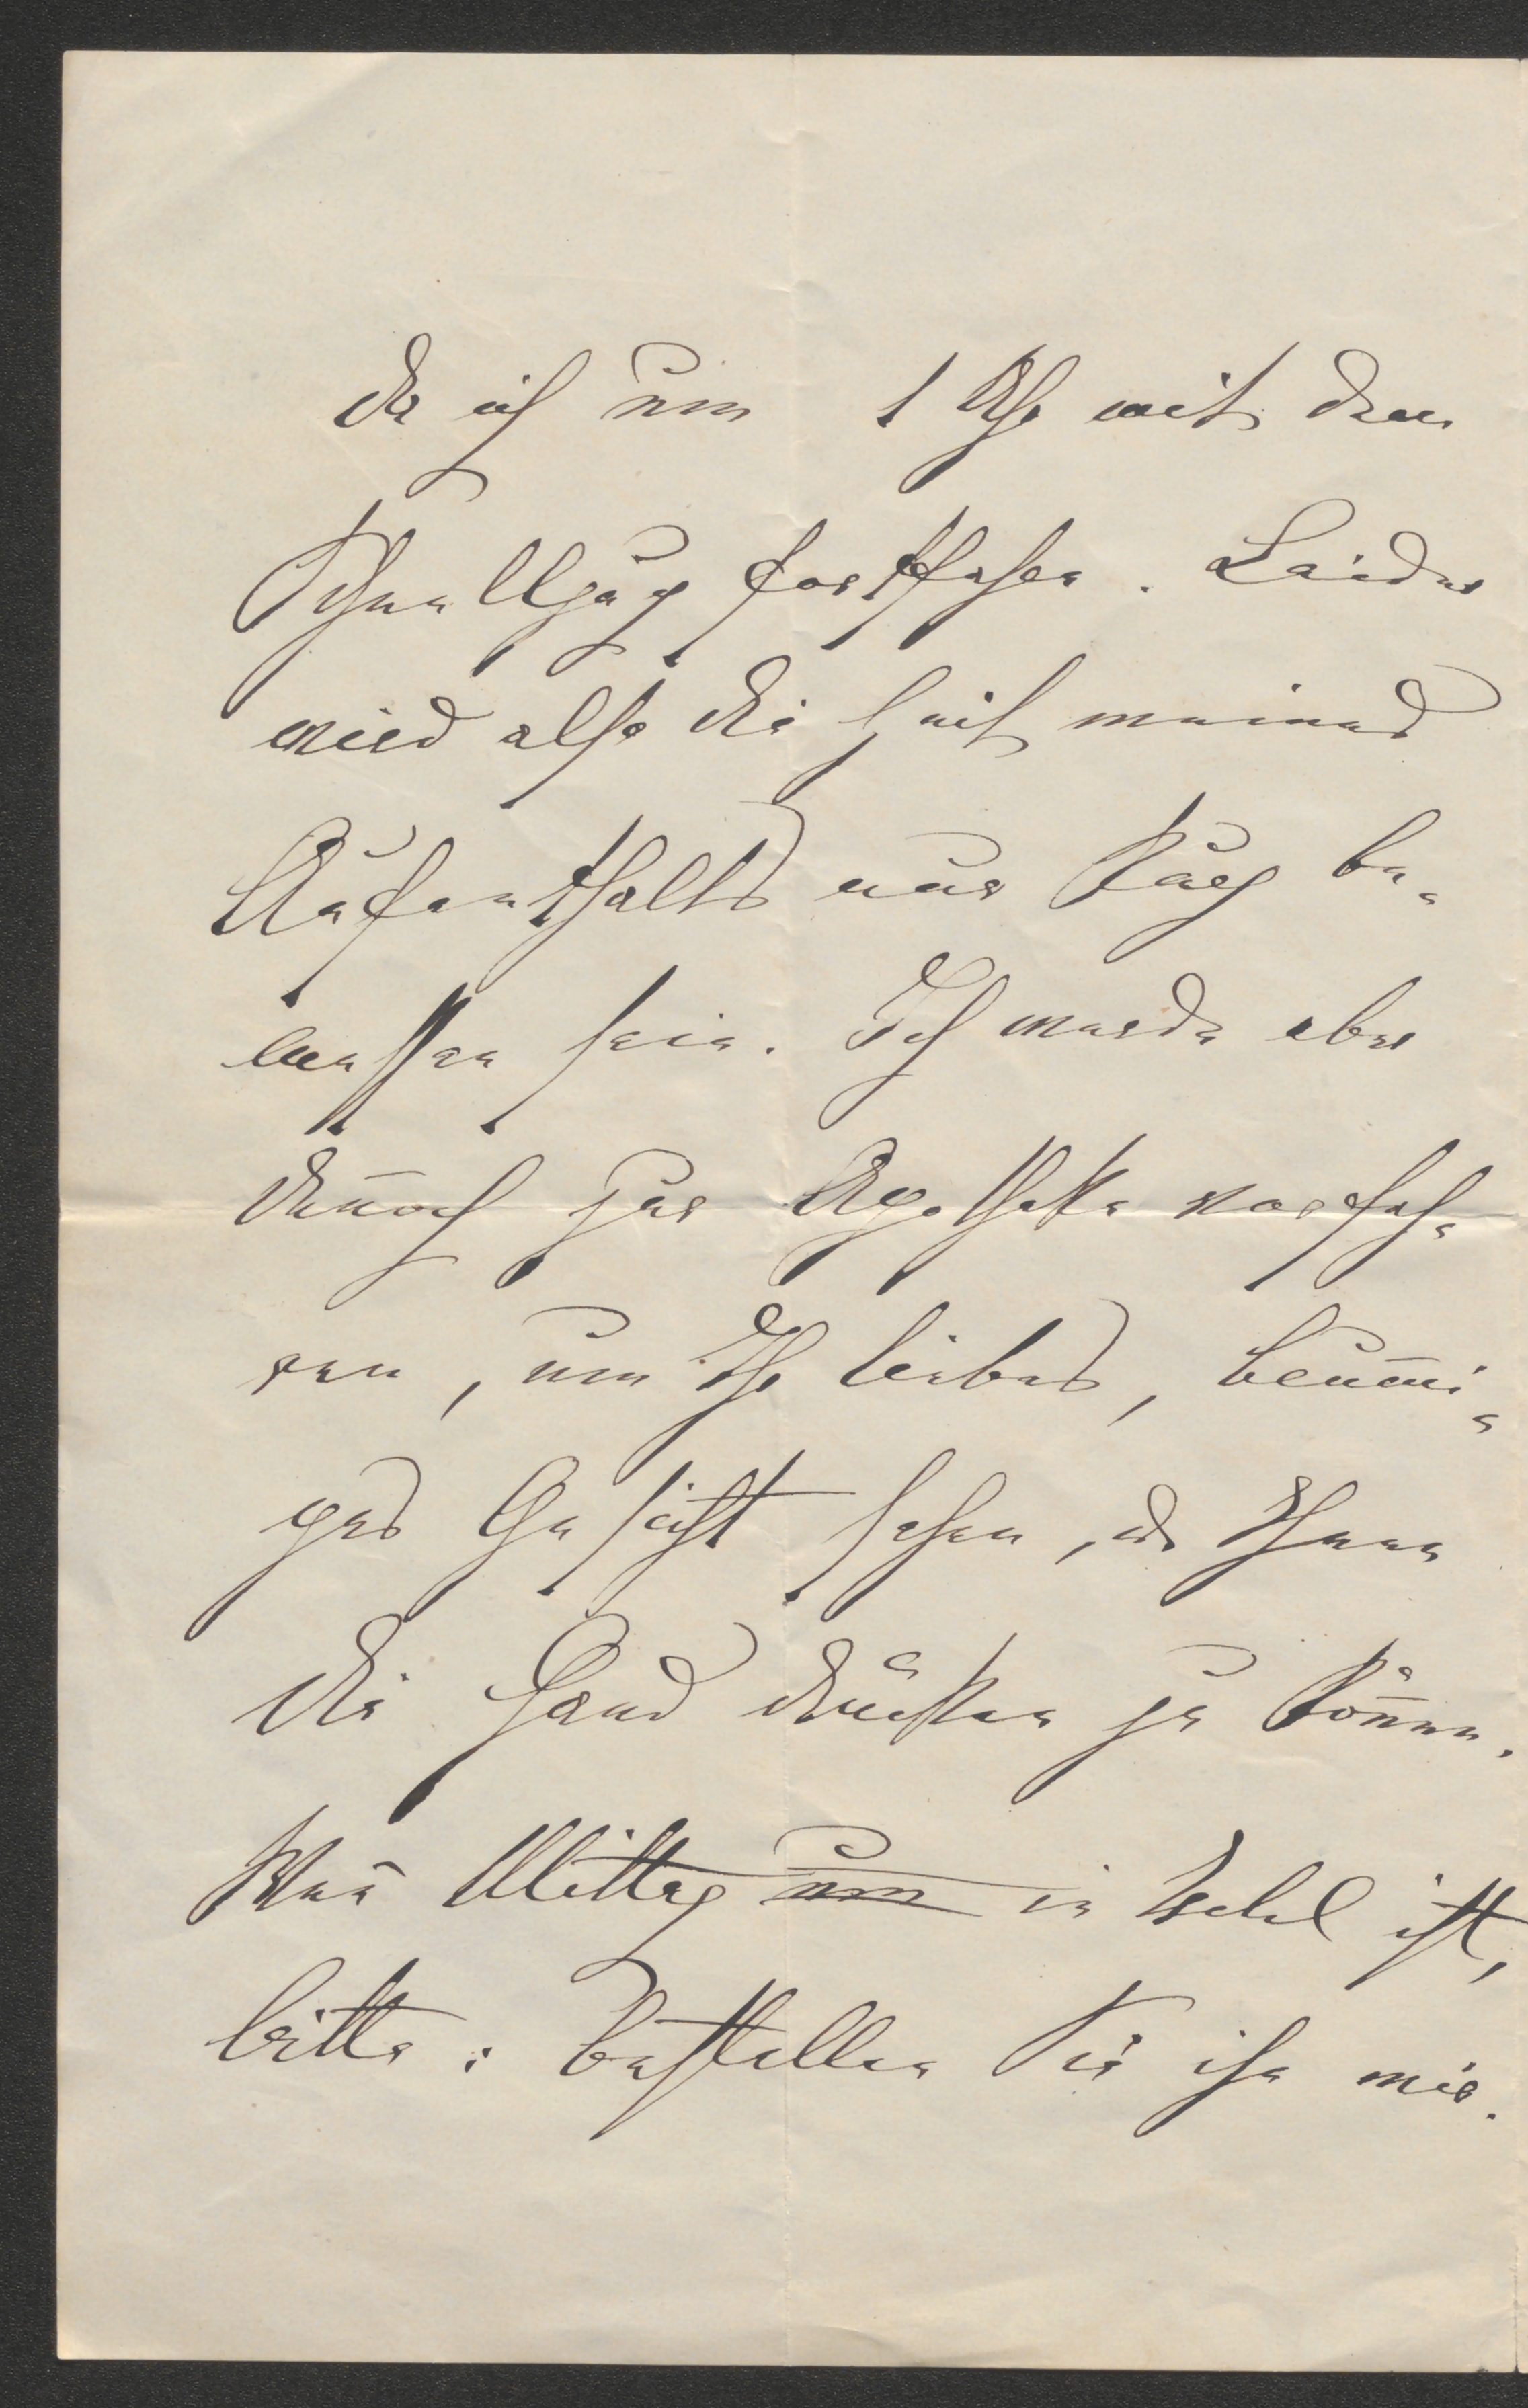 da ich um 1 Uhr mit dem
Schnellzug fortfahre. Leider
wird also die Zeit meines
Aufenthalts nur kurz be-
messen sein. Ich werde aber
deñoch zur Apotheke vorfah-
ren, um Ihr liebes,
ges Gesicht sehen, u Ihnen
die Hand drücken zu köñen.
Weñ Mittag um in ist,
bitte: bestellen Sie ihn mir.